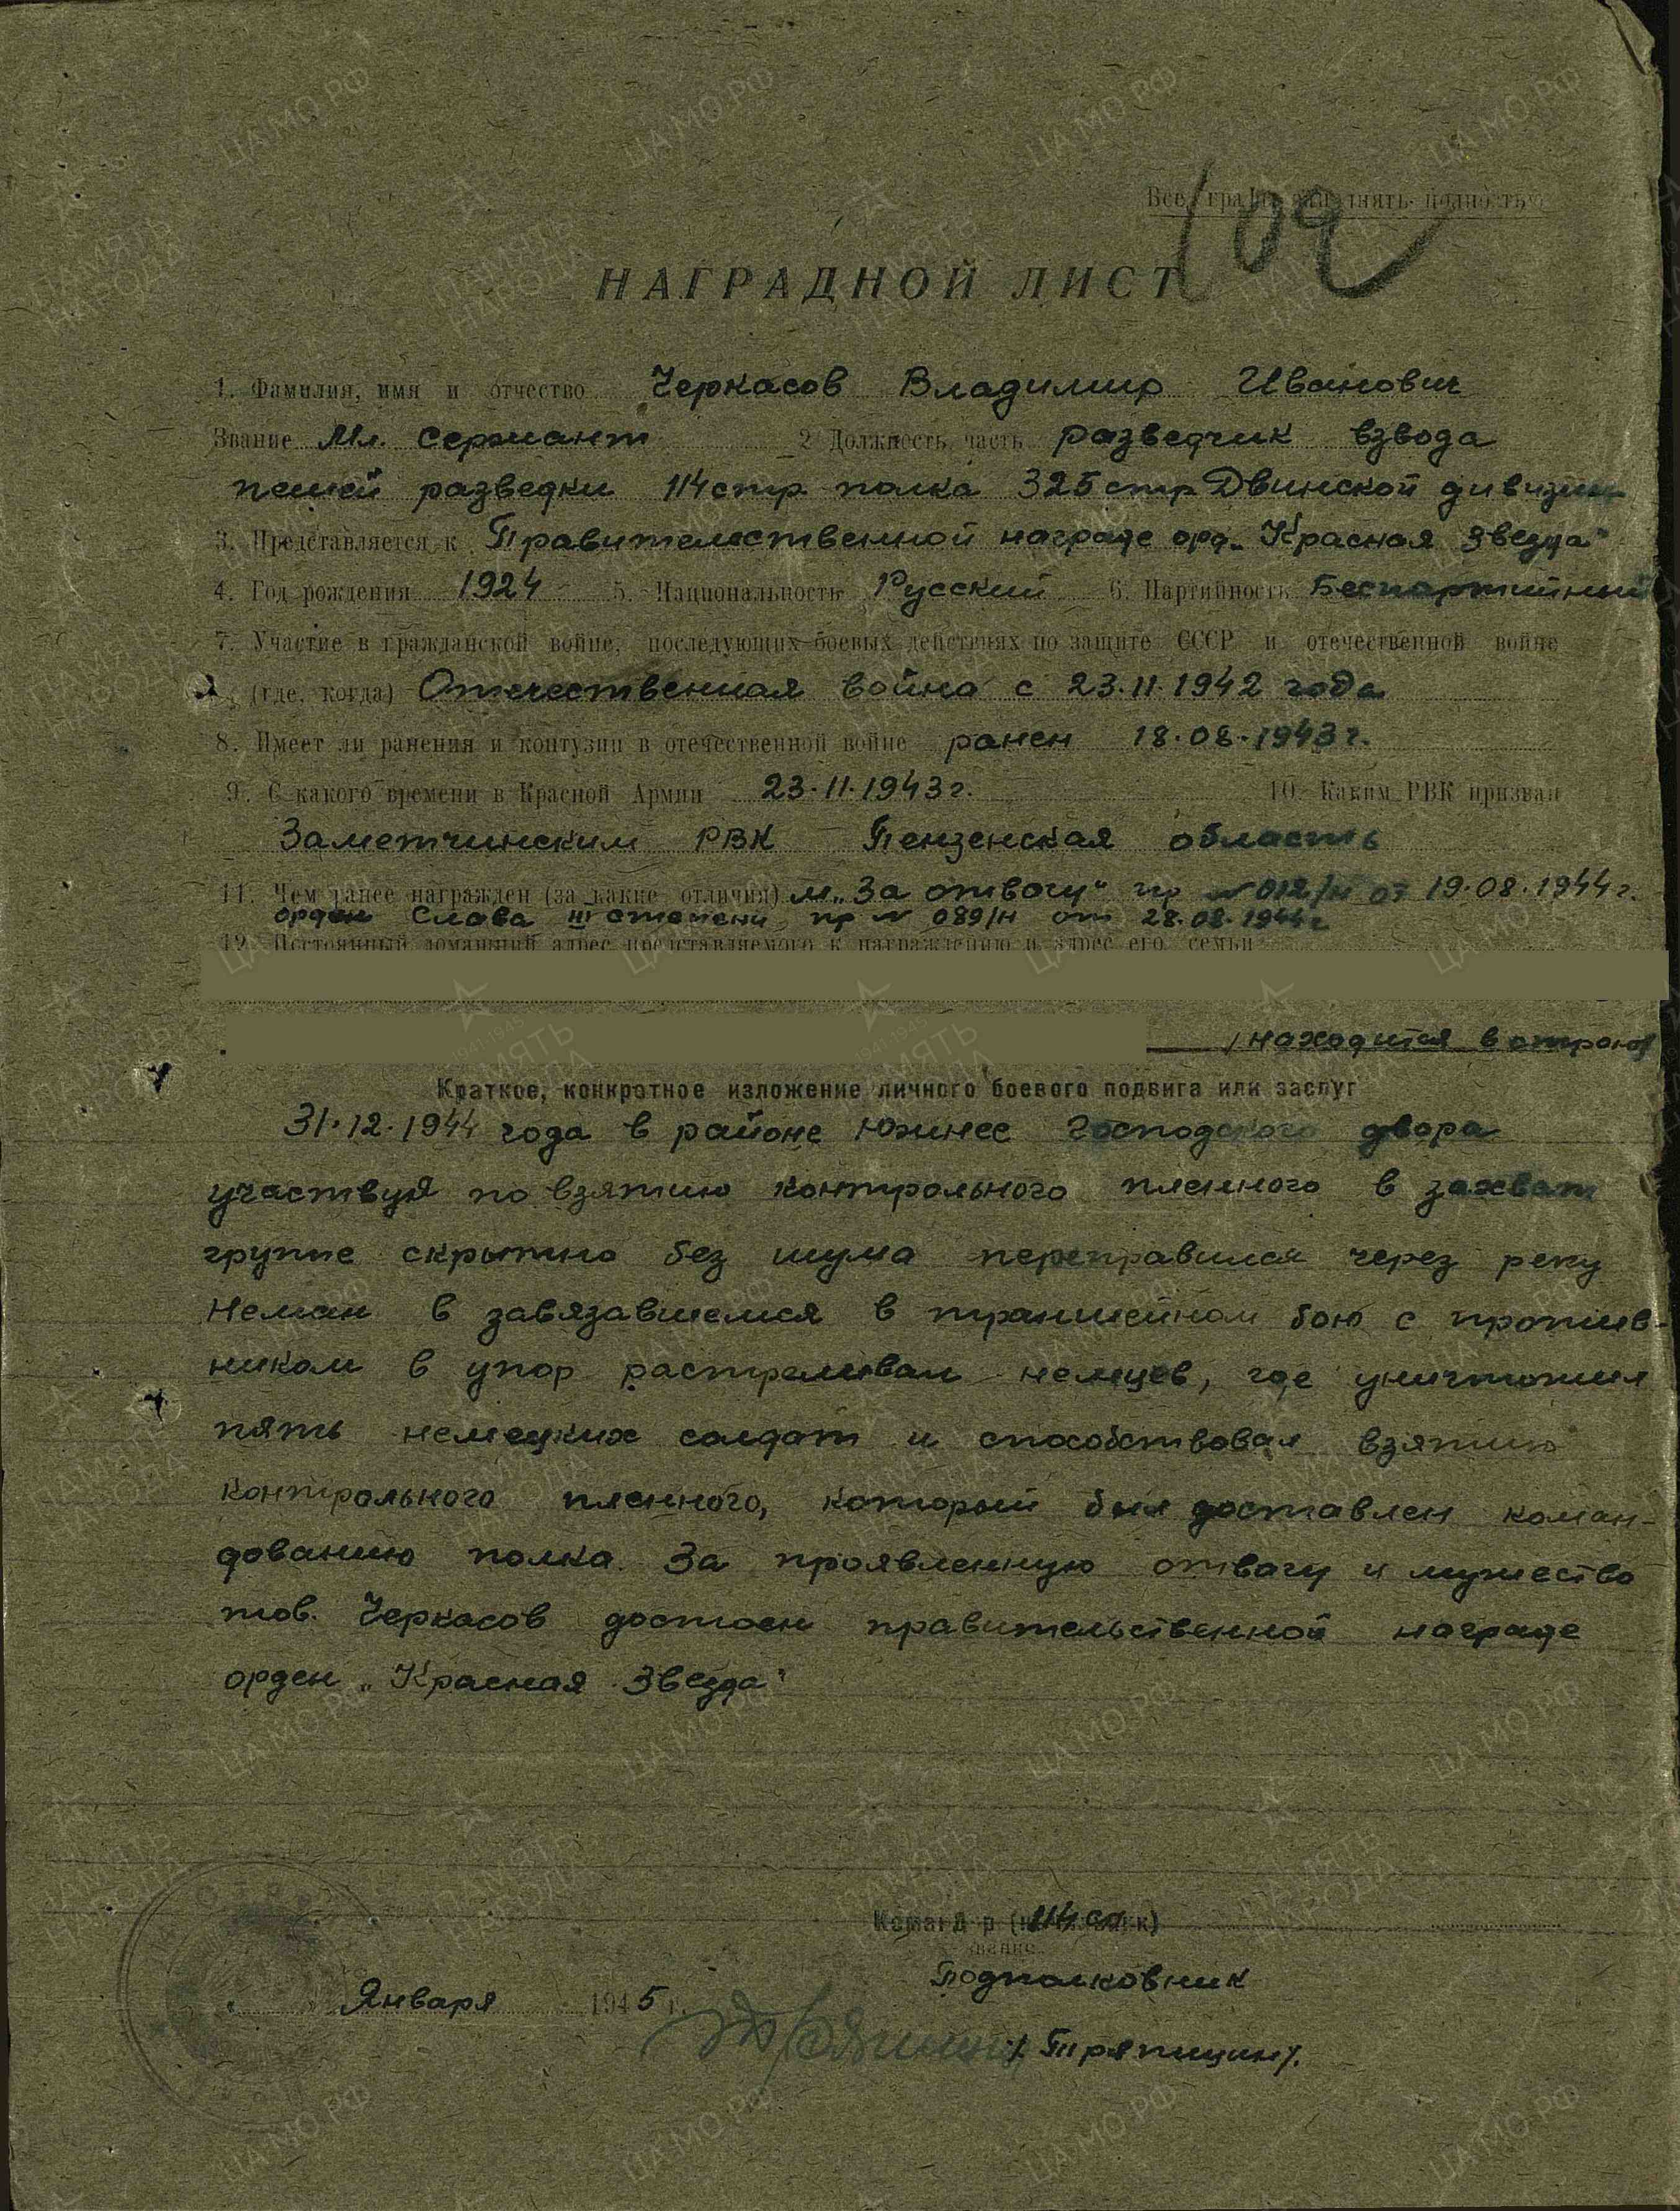 Все графы заполнять полностью
109
НАГРАДНОЙ ЛИСТ
1. Фамилия, имя и отчество Черкасов Владимир Иванович
Звание Мл. Сержант 2 Должность, часть разведчик взвода
пешей разведки 114 стр полка 325 стр Двинской дивизии
3. Представляется к Правительственной награде орд. „Красная Звезда"
4. Год рождения 1924 5. Национальность Русский 6. Партийность Беспартийный
7. Участие в гражданской войне, последующих боевых действиях по защите СССР и отечественной войне
(где, когда) Отечественная война с 23.11.1942 года
8. Имеет ли ранения и контузии в отечественной войне ранен 18.08.1943 г.
9. С какого времени в Красной Армии 23.11.1943 г. 10. Каким РВК призван
Заметчинским РВК Пензенская область
11. Чем ранее награжден (за какие отличия) м. „За отвагу" пр № 012/н от 19.08.1944 г.
орден Слава III степени пр № 089/н от 28.08.1944 г
12. Постоянный домашний адрес представляемого к награждению и адрес его семьи
/находится в
Краткое, конкретное изложение личного боевого подвига или заслуг
31.12.1944 года в районе Господского двора
участвуя по взятию контрольного пленного в захват
группе скрытно без шума переправился через реку
Неман в завязавшемся в траншейном бою с против-
ником в упор растреливал немцев, где уничтожил
пять немецких солдат и способствовал взятию
контрольного пленного, который был доставлен коман-
дованию полка. За проявленную отвагу и мужество
тов. Черкасов достоен правительственной награде
орден „Красная Звезда"
Командир 114 сп
звание
Подполковник
Января 1945 г.
/Тряпицин/.